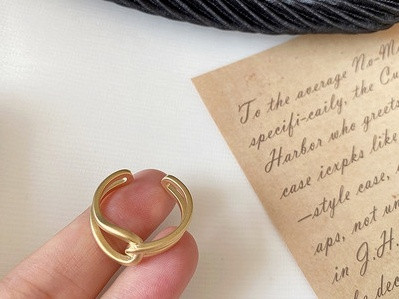 To the average No-M
specifi-caily, the Cu
Harbor who greets
case icxpks like
-style case,
aps, not un
in J.H.
dec